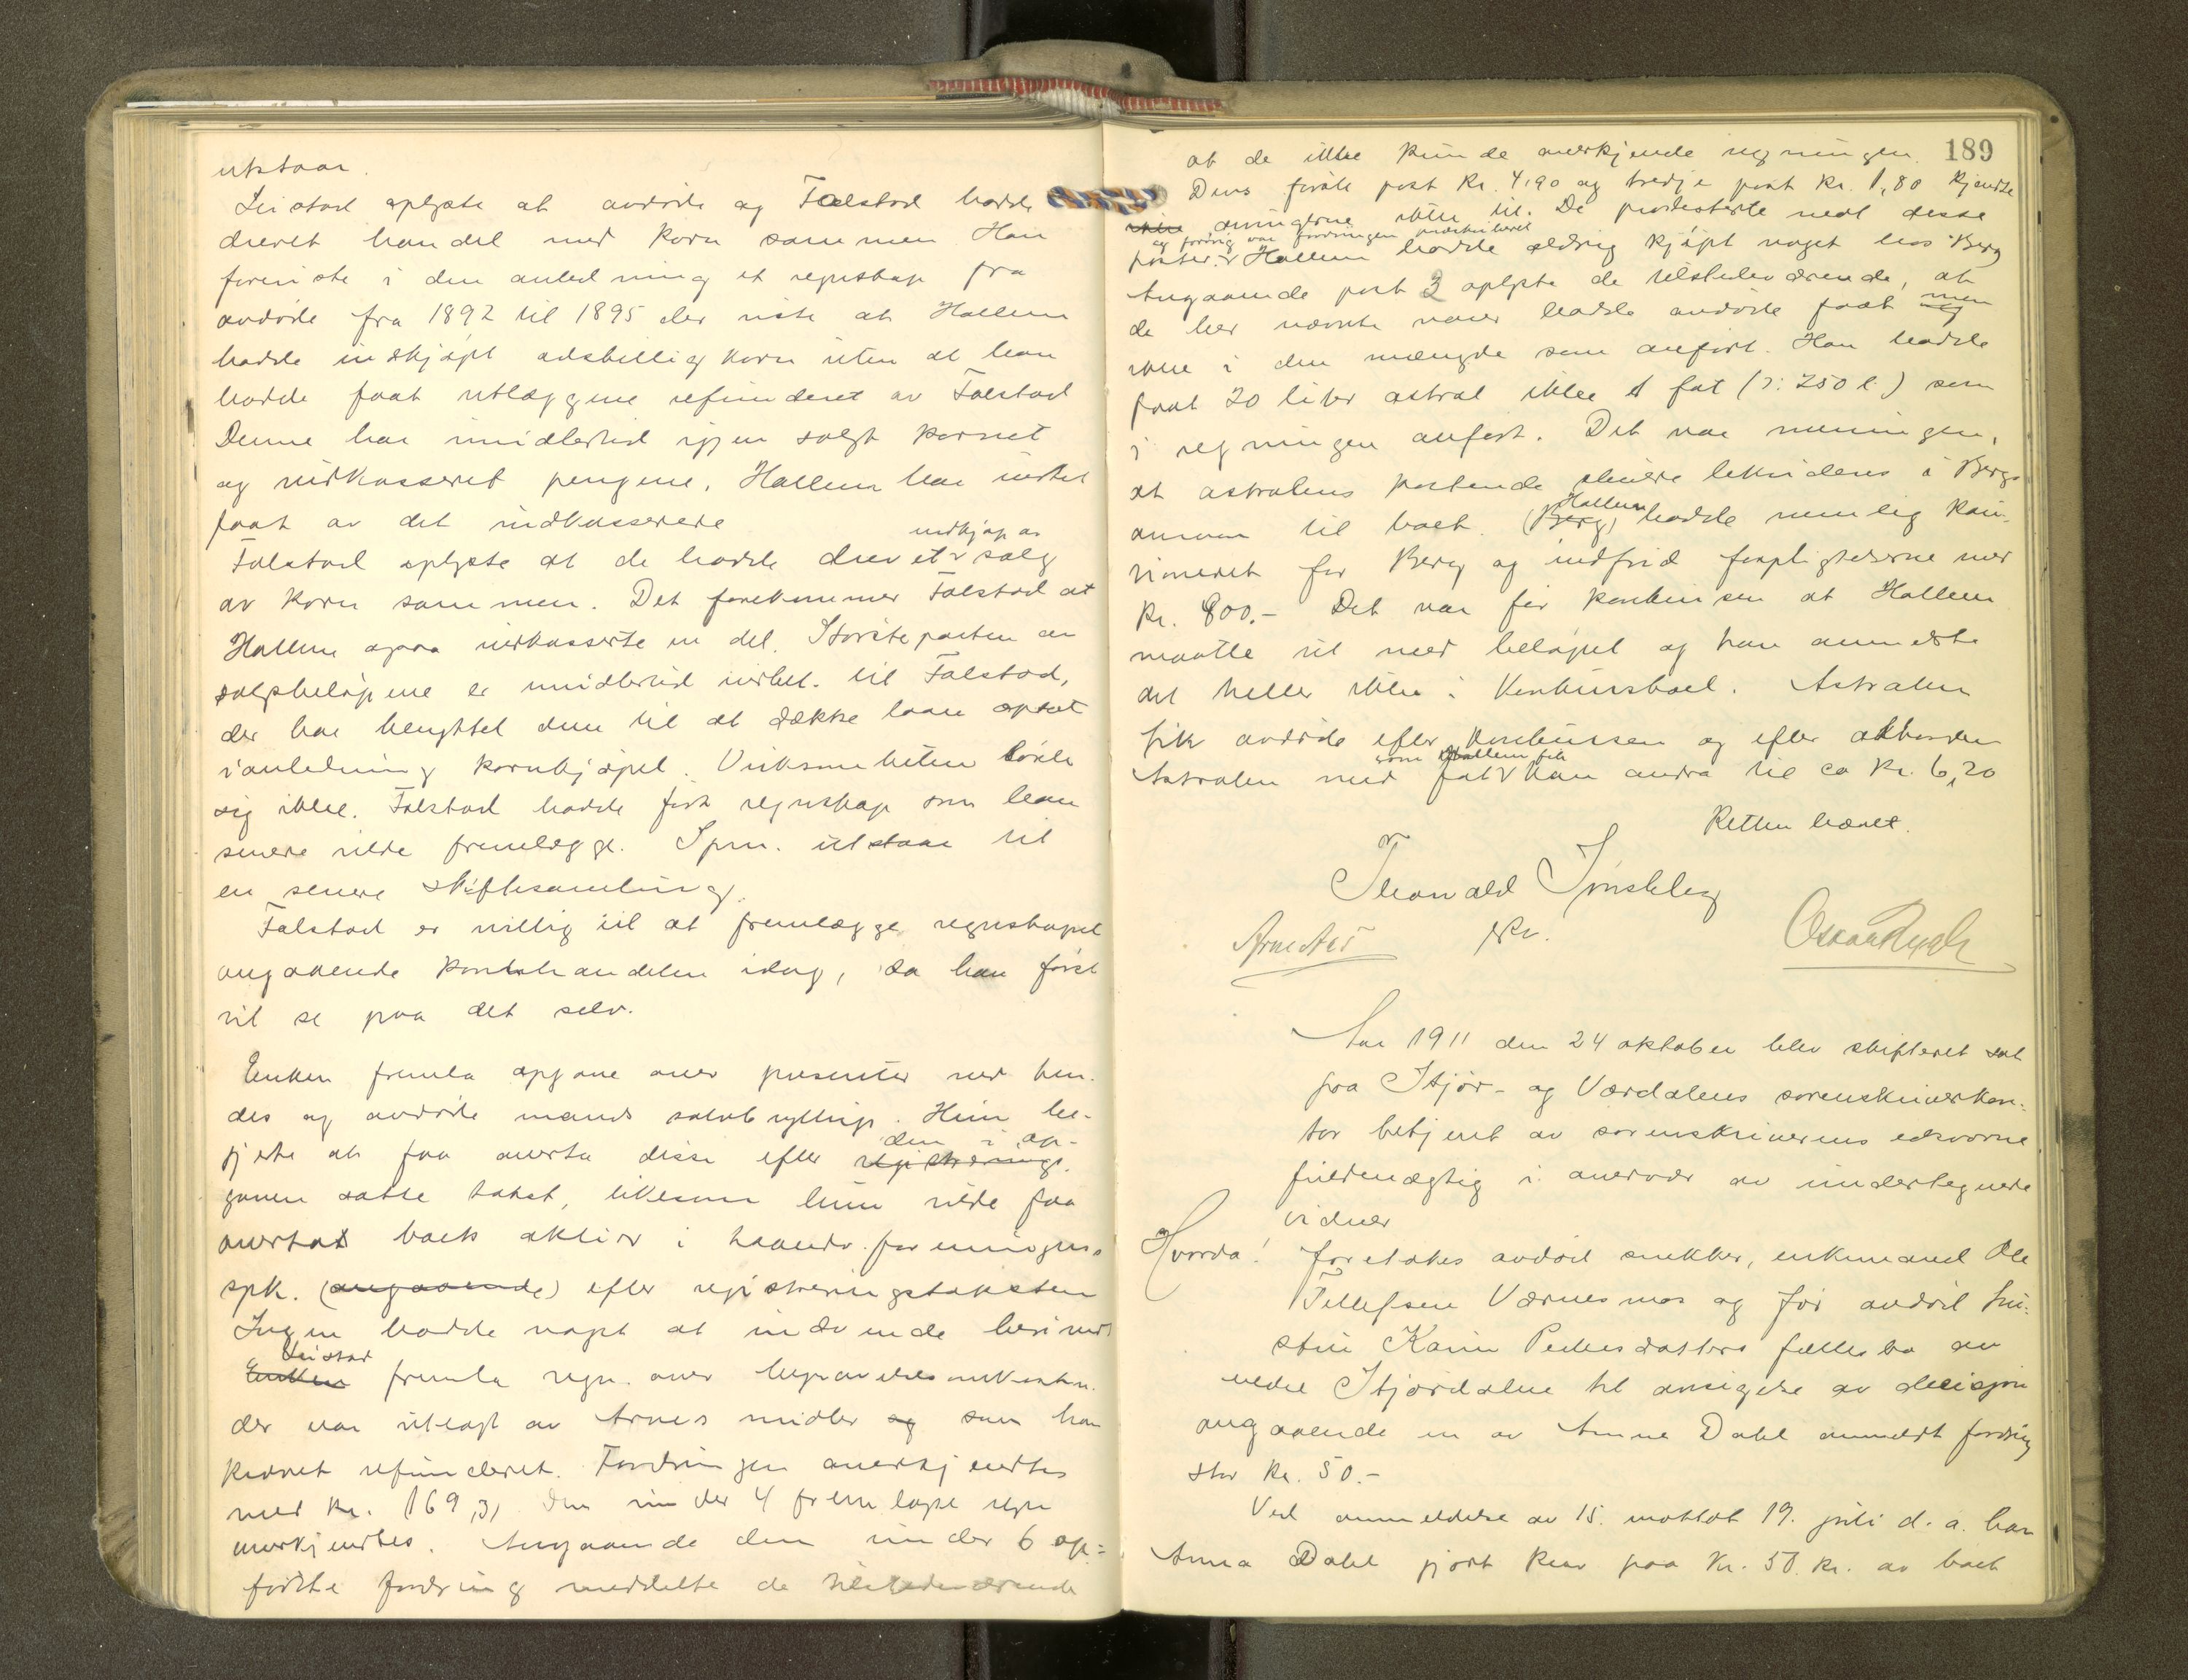 utstaar.
Leistad oplyste at avdøde og Falstad hadde
drevet handel med korn sammen Han
foreviste i den anledning et regnskap fra
avdøde fra 1892 til 1895 der viste at Hallem
hadde indkjøpt adskillig korn uten at han
hadde faat utlæggene refunderet av Falstad
Denne har imidlertid igjen solgt kornet
og indkasseret pengene. Hallem har intet
faat av det indkasserede
indkjøp av
Falstad oplyste at de hadde drevet salg
av korn sammen. Det forekommer Falstad at
Hallem ogsaa indkasserte en del. Størsteparten av
salgsbeløpene er imidlertid indbet. til Falstad,
der har benyttet dem til at dække laan optat
i anledning kornkjøpet. Virksomheten lønte
sig ikke. Falstad hadde ført regnskap som han
senere vilde fremlægge. Spm. utstaar til
en senere skiftesamling.
Falstad er villig til at fremlægge regnskapet
angaaende kornhandelen idag, da han først
vil se paa det selv.
Enken fremla opgave over presenter ved hen-
des og avdøde mands sølvbryllup. Hun be-
den i op-
gjerte at faa overta disse efter registrerings-
gaven satte takst, likesom hun vilde faa
overtat boets aktier i haandv. foreningens
spk. (angaaende) efter registreringstaksten
Ingen hadde noget at indvende herimot
Leistad
Enken fremla regn. over begravelsesomkostn.
der var utlagt av Arnes midler og som han
krævet refunderet. Fordringen anerkjendtes
med kr. 169,31 Den under 4 fremlagte regn
anerkjendtes. Angaaende den under 6 op-
førte fordring meddelte de tilstedeværende
189
at de ikke kunde anerkjende regningen
Dens første post kr. 4,90 og tredje post kr. 1,80 kjendte
ikke arvingerne ikke til. De protesterte mot disse
og forøvrig var fordringen præskriberet
poster. Hallem hadde aldrig kjøpt noget hos Berg
Angaaende post 3 oplyste de tilstedeværende, at
de her nævnte varer hadde avdøde faat og men
ikke i den mængde som anført. Han hadde
faat 20 liter astral ikke 1 fat (ɔ: 250 l.) som
i regningen anført. Det var meningen,
at astralens kostende skulde likvideres i Bergs
Hallem
ansvar til boet. (Berg) hadde nemlig kau-
tioneret for Berg og indfrid forpligtelserne med
kr. 800.- Det var før konkursen at Hallem
maatte ut med beløpet og han anmeldte
det heller ikke i konkursboet. Astralen
fik avdøde efter konkursen og efter akkorden
som Hallem fik
Astralen med fat kan andra til ca kr. 6,20
Retten hævet.
Thorvald Tønseberg
kv.
Arne Aas
Oscar Rygh
Aar 1911 den 24 oktober blev skifteret sat
paa Stjør- og Værdalens sorenskriverkon-
tor betjent av sorenskriverens edsvorne
fuldmægtig i overvær av undertegnede
vidner
Hvorda! foretokes avdød snekker, enkemand Ole
Tellefsen Værnesmo og før avdød hu-
stru Karen Pedersdatters fællesbo av
nedre Stjørdalen til avsigelse av decisjon
angaaende en av Anna Dahl anmeldt fordring
stor kr. 50.-
Ved anmeldelse av 15. mottat 19. juli d. a. har
Anna Dahl gjort krav paa kr. 50. kr. av boet